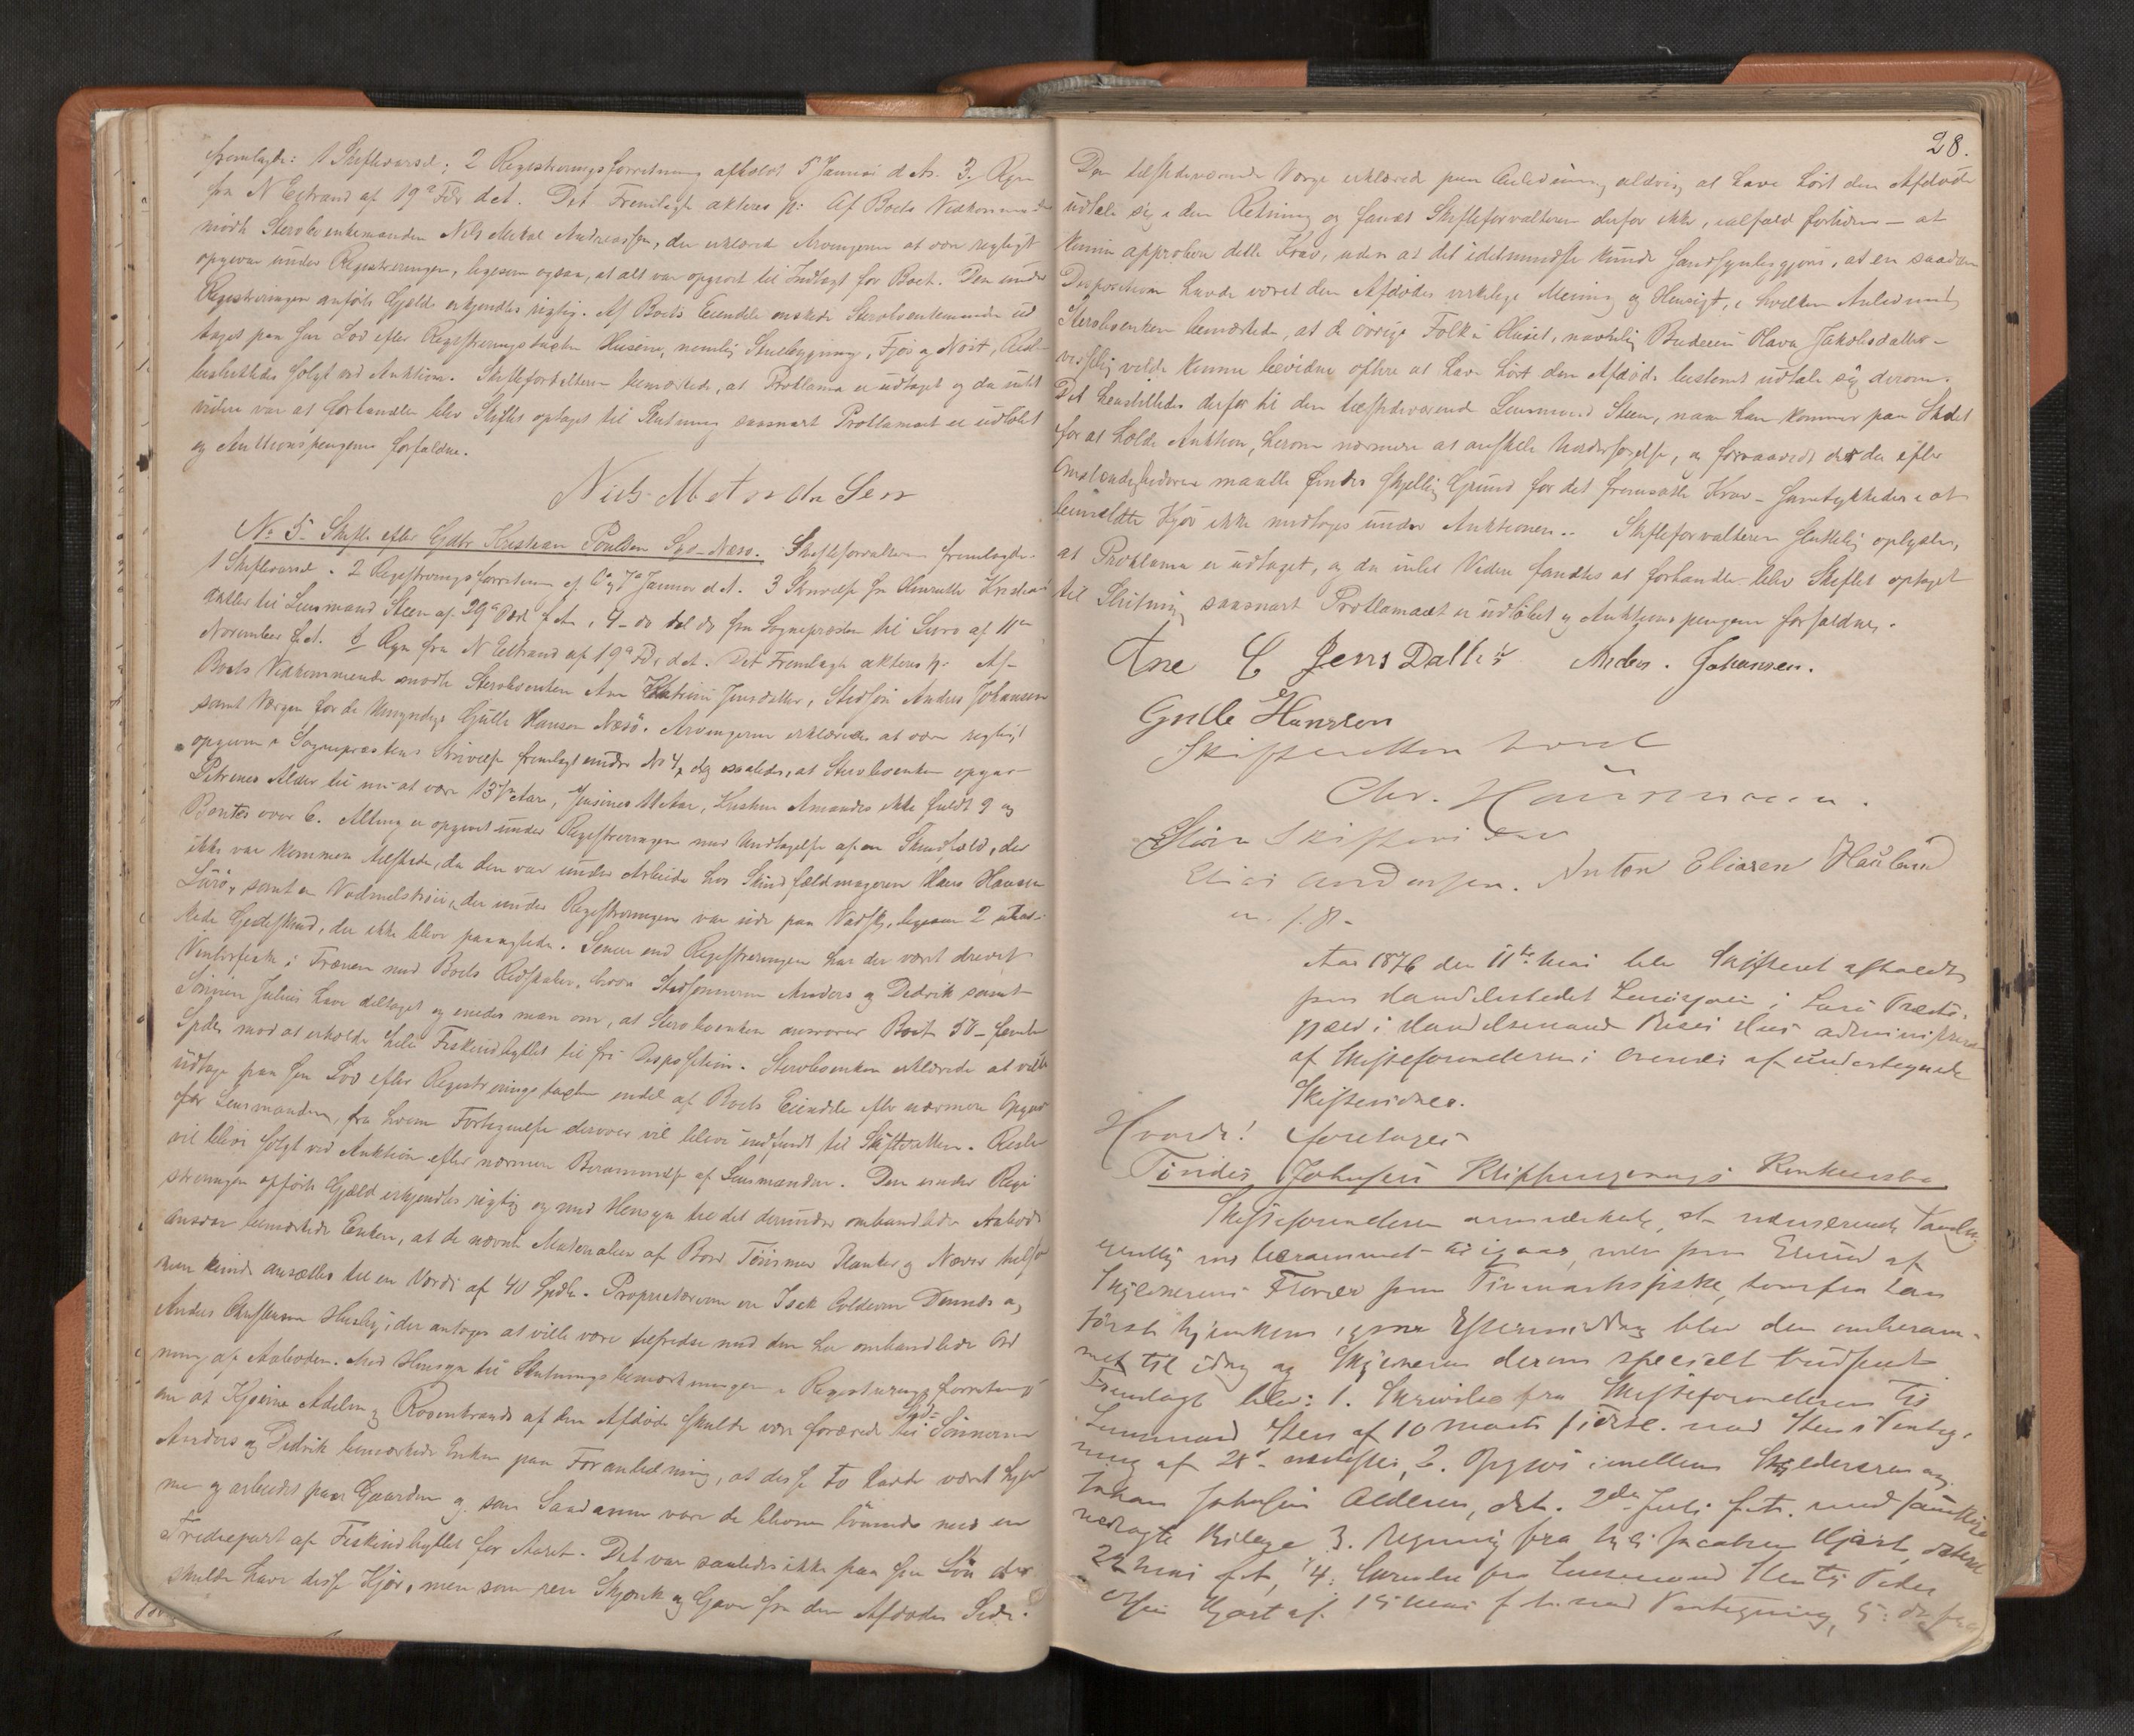 fremlagde: 1 Skiftevarsel; 2 Registreringsforretning afholdt 5 Januar d. A. 3. Regn
fra N Estrand af 19de Febr. d. A. Det Fremlagte akteres p: Af Boets Vedkommende
mødte Sterboenkemanden Nils Mikal Andreassen, der erklærede Arvingerne at være rigtigt
opgivne under Registreringen, ligesom ogsaa, at alt var opgivet til Indtægt for Boet. Den under
Registreringen anførte Gjæld erkjendtes rigtig. Af Boets Eiendele ønskede Sterboenkemanden ud
taget paa sin Lod efter Registreringstaxten Husene, nemlig Stuebygning, Fjøs og Nøst, Rest
besluttedes solgt ved Auktion. Skifteforvalteren bemærkede, at Proklama er udtaget og da intet
videre var at forhandle blev Skiftet optaget til Slutning saasnart Proklamaet er udløbet
og Auktionspengene forfaldne.
Nils M Andr Sen
No 5. Skifte efter Gdbr Kristian Poulsen Syd-Næsø. Skifteforvalteren fremlagde
1 Skiftevarsel. 2 Registreringsforretning af 6 og 7de Januar d. A. 3 Skrivelse fra Henriette Kristians
datter til Lensmand Steen af 29de f. A., 4 do fra Sognepræsten til Lurø af 11te
November f. A. 5 Regn fra N Estrand af 19de Fbr d. A. Det Fremlagte akteres p: Af
Boets Vedkommende mødte Sterboenken Ane Katrine Jensdatter, Stedsøn Anders Johansen
samt Værgen for de Umyndige Gulle Hansen Næsø. Arvingerne erklæredes at være rigtigt
opgivne i Sognepræstens Skrivelse fremlagt under No 4, dog saaledes, at Sterboenken opgav
Petrines Alder til nu at være 13 Aar, Jusines 11 Aar, Amandes ikke fuldt 9 og
Bontes over 6. Alting er opgivet under Registreringen med Undtagelse af en Skindfæld, der
ikke var kommen tilstede, da den var under Arbeide hos Skindfældmageren Hans Hansen
Lurø, samt en Vadmelstrøie, der under Registreringen var ude paa Vadsk, ligesom 2
Gjedeskind, der ikke blev paaagtede. Senere end Registreringen har der været drevet
Vinterfiske i Trænen med Boets Redskaber, hvori Stedsønnerne Anders og Dedrik samt
Sønnen Julius have deltaget og enedes man om, at Sterboenken ansvarer Boet 50 - femti
Spdlr mod at erholde hele Fiskeudbyttet til fri Disposition. Sterboenken erklærede at ville
udtage paa sin Lod efter Registreringstaxten endel af Boets Eiendele efter nærmere Opgave
for Lensmanden, fra hvem Fortegnelse derover vil blive indsendt til Skifteretten. Resten
vil blive solgt ved Auktion efter nærmere Berammelse af Lensmanden. Den under Regi
streringen opførte Gjæld erkjendtes rigtig og med Hensyn til det derunder omhandlede Aabods
ansvar bemærkede Enken, at de nævnte Materialier af Bord, Tømmer, Planker og Næver
kun kunde ansættes til en Værdi af 40 Spdlr. Proprietærerne ere Isak Coldevin Dønnes og
Anders Christensen Husby, der antages at ville være tilfredse med den her omhandlede Ord
ning af Aaboden. Med Hensyn til Slutningsbemærkningen i Registreringsforretning
om at Kjørne Adelin og Rosenbrand af den Afdøde skulde være forærede til Sted= Sønnerne
Anders og Dedrik bemærkede Enken paa Foranledning, at disse to havde været hjem
me og arbeidet paa Gaarden og som Saadanne vare de blevne lønnede med en
Trediepart af Fiskeudbyttet for Aaret. Det var saaledes ikke paa sin Løn de
skulde have disse Kjør, men som ren Skjænk og Gave fra den Afdødes Side.
28.
Den tilstedeværende Værge erklærede paa Anledning aldrig at have hørt den Afdøde
udtale sig i den Retning og fandt Skifteforvalteren derfor ikke, ialfald fortiden - at
kunne approbere dette Krav, uden at det idetmindste kunde sandsynliggjøres, at en saadan
Disposition havde været den Afdødes virkelige Mening og Hensigt, i hvilken Anledning
Sterboenken bemærkede, at de øvrige Folk i Huset, navnlig Budeien Olava Jakobsdatter
visselig vilde kunne bevidne oftere at have hørt den Afdøde bestemt udtale sig derom.
Det henstilledes derfor til den tilstedeværende Lensmand Steen, naar han kommer paa Stedet
for at holde Auktion, herom nærmere at anstille Undersøgelse, og forsaavidt der da efter
Omstændighederne maatte findes skjellig Grund for det fremsatte Krav - samtykkedes i at
bemeldte Kjør ikke medtages under Auktionen. Skifteforvalteren sluttelig oplyste,
at Proklama er udtaget, og da intet Videre fandtes at forhandle blev Skiftet optaget
til Slutning saasnart Proklamaet er udløbet og Auktionspengene forfaldne.
Ane C Jens Datter Anders. Johansen.
Gulle Hansen
Skifteretten hævet
Chr. Hausmann.
Som Skiftevidner
Elias Andersen. Anton Eliasen Hauland
m. f. P.
Aar 1876 den 11te Mai blev Skifteret afholdt
paa Handelsstedet Lurøgaard i Lurø Præste-
gjæld i Handelsmand Hus administreret
af Skifteforvalteren i Overvær af undertegnede
Skiftevidner.
Hvorda! foretages
Tindes Johnsens Klippingsvaags Konkursbo
Skifteforvalteren anmærkede, at nærværende Samling
egentlig var berammet til igaar, men paa Grund af
Skyldnerens Fravær paa Finmarksfiske, hvorfra han
først hjemkom igaar Eftermiddag blev den omberam-
met til idag og Skyldneren derom specielt budsendt
Fremlagt blev: 1. Skrivelse fra Skifteforvalteren til
Lensmand Steen af 10 Marts sidstl. med Steens Pateg-
ning af 28de næstefter, 2. Opgjør imellem Skyldneren og
Johan Johnsen Alderen, dat. 2den Juli f. A. med
vedlagte Bilage 3. Regning fra Hjort, dateret
22 Mai f. A, 4: Skrivelse fra Lensmand Steen til Peder
Hjort af 15 Mai f. A. med Paategning, 5: do fra